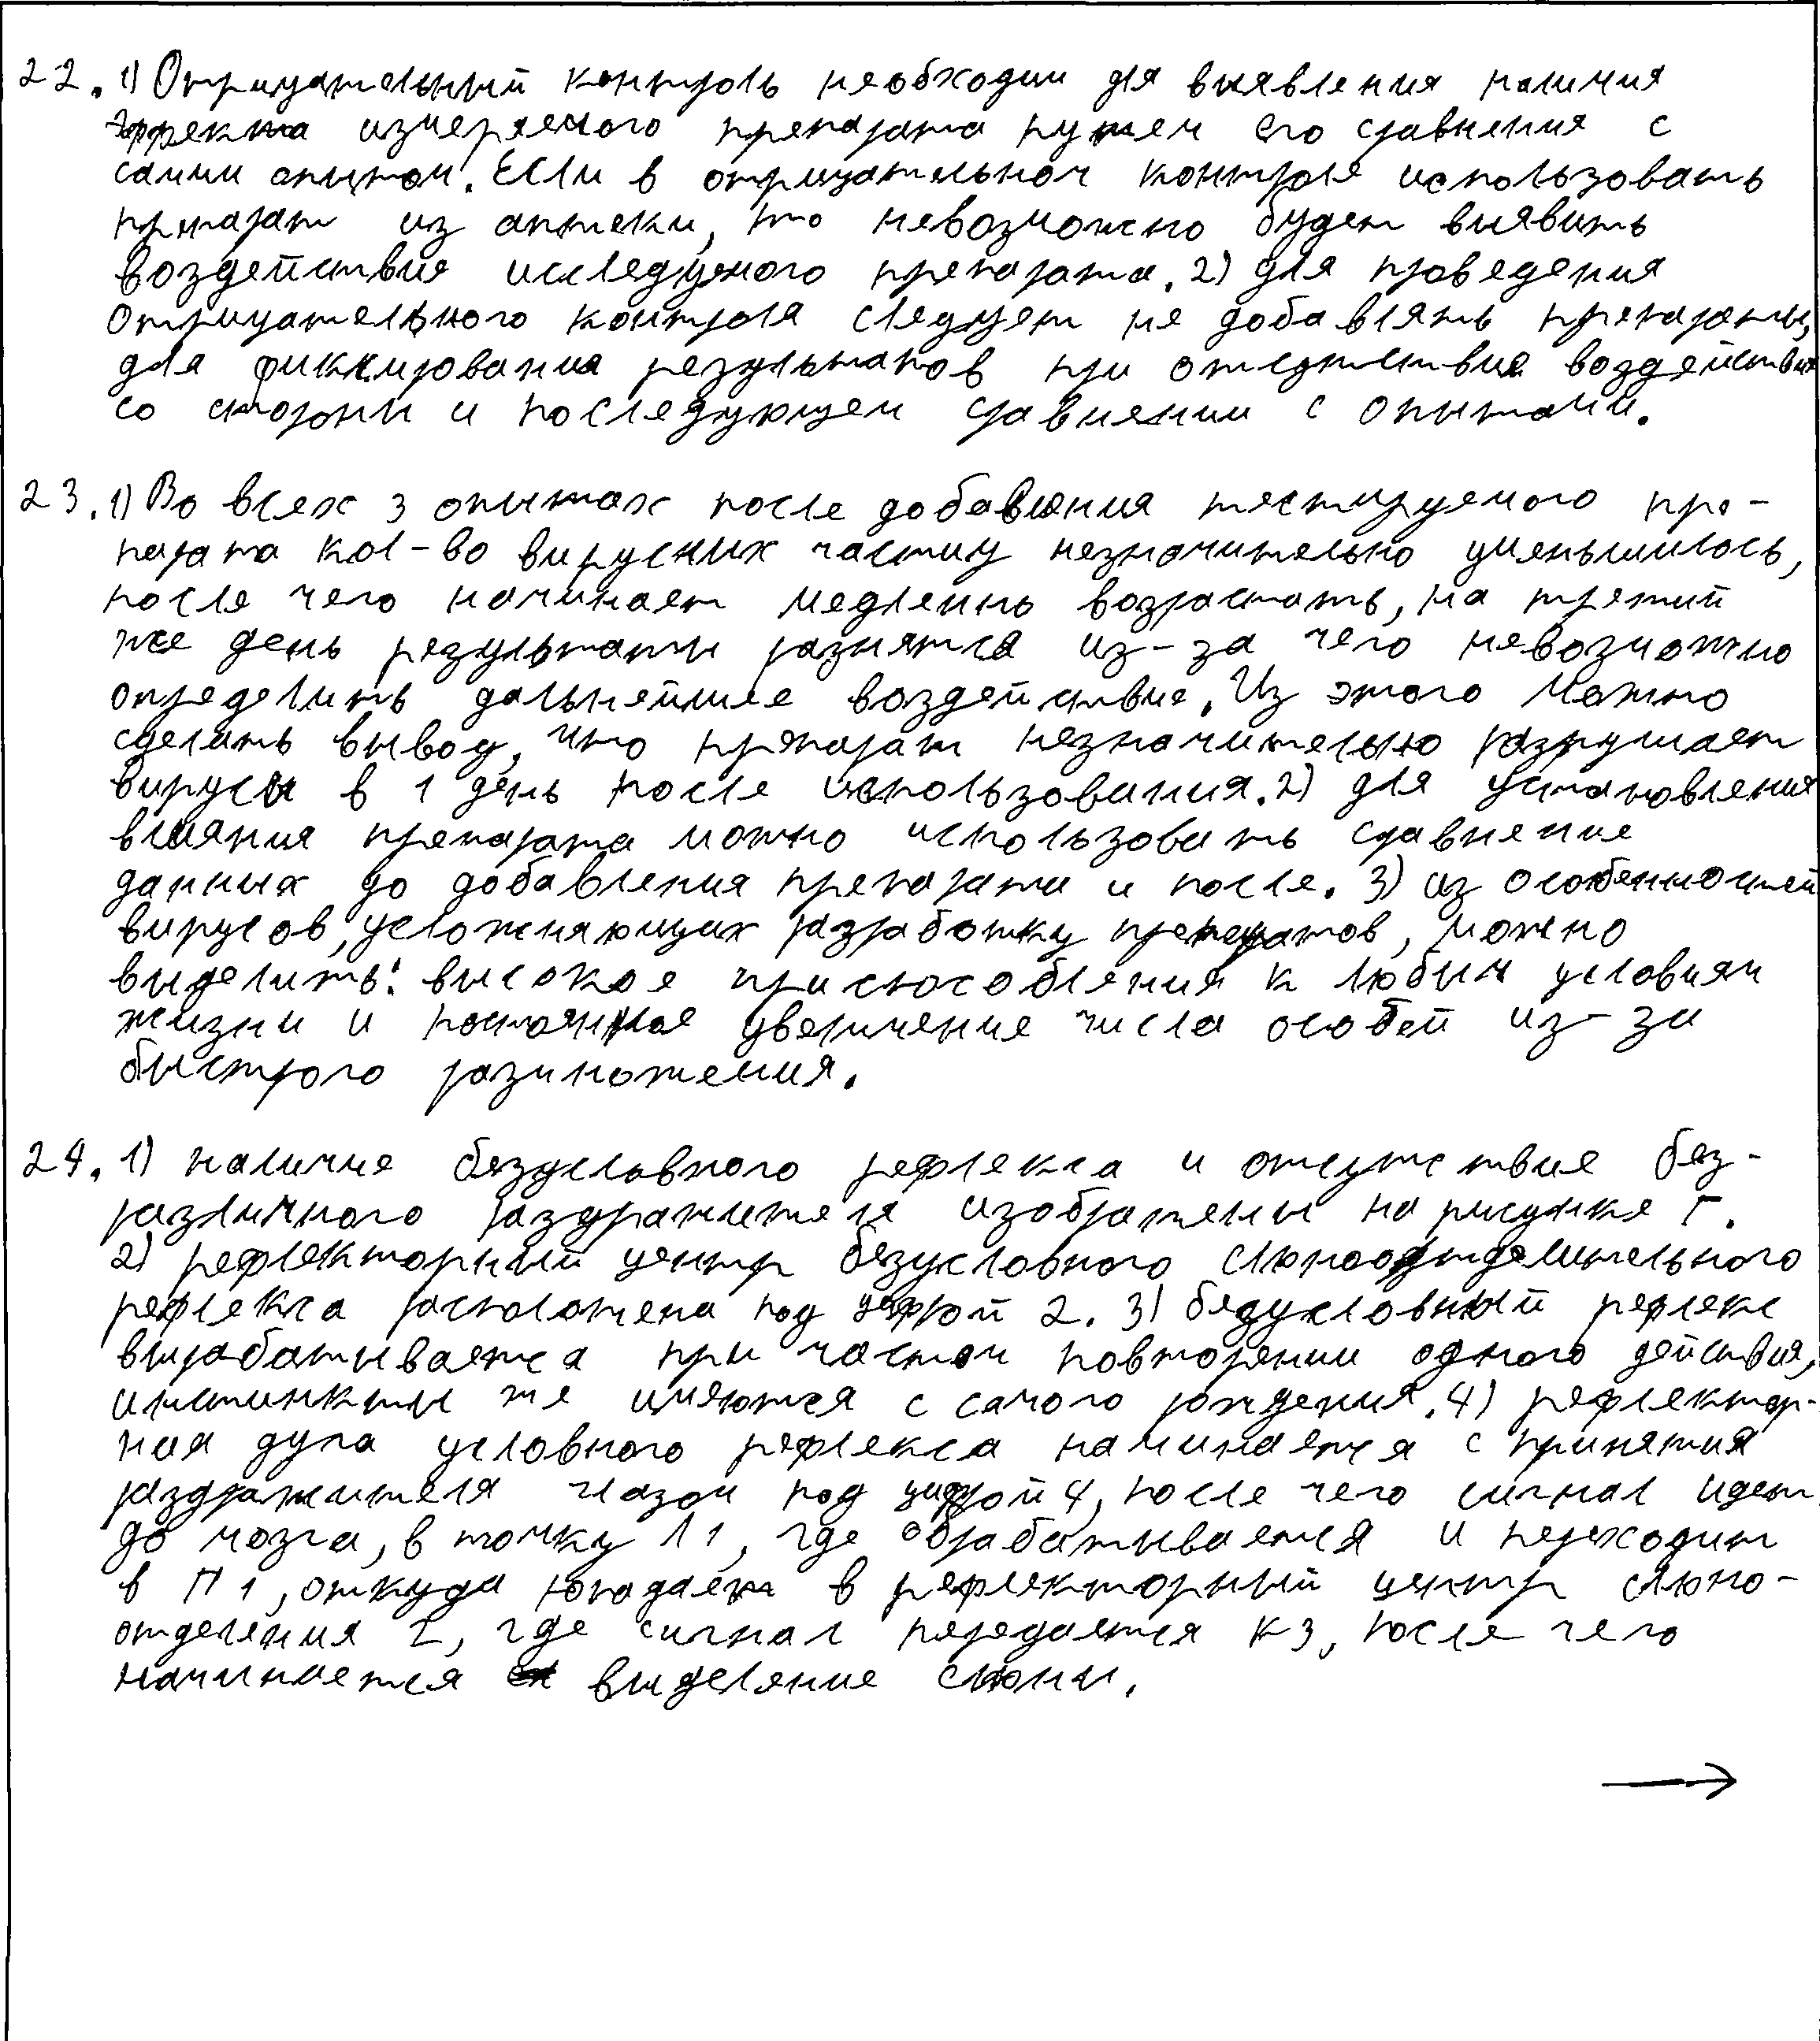 22. 1) Отрицательный контроль необходим для выявления наличия
эффекта измеряемого препарата путем его сравнения с
самим опытом. Если в отрицательном контроле использовать
препарат из аптеки, то невозможно будет выявить
воздействие исследуемого препарата. 2) для проведения
отрицательного контроля следует не добавлять препараты,
для фиксирования результатов при отсутствие воздействия
со стороны и последующем сравнении с опытами.
23. 1) Во всех 3 опытах после добавления тестируемого пре-
парата кол-во вирусных частиц незначительно уменьшилось,
после чего начинает медленно возрастать, на третий
же день результаты разнятся из-за чего невозможно
определить дальнейшее воздействие. Из этого можно
сделать вывод, что препарат незначительно разрушает
вирусы в 1 день после использования. 2) для установления
влияния препарата можно использовать сравнение
данных до добавления препарата и после. 3) из особенностей
вирусов, усложняющих разработку препаратов, можно
выделить: высокое приспособления к любым условиям
жизни и постоянное увеличение числа особей из-за
быстрого размножения.
24. 1) наличие безусловного рефлекса и отсутствие без-
различного раздражителя изображены на рисунке Г.
2) рефлекторный центр безусловного слюноотделительного
рефлекса расположена под цифрой 2. 3) безусловный рефлекс
вырабатывается при частом повторении одного действия,
инстинкты же имеются с самого рождения. 4) рефлектор-
ная дуга условного рефлекса начинается с принятия
раздражителя глазом под цифрой 4, после чего сигнал идет
до мозга, в точку 11, где обрабатывается и переходит
в П1, откуда попадает в рефлекторный центр слюно-
отделения 2, где сигнал передается к 3, после чего
начинается выделение слюны.
→